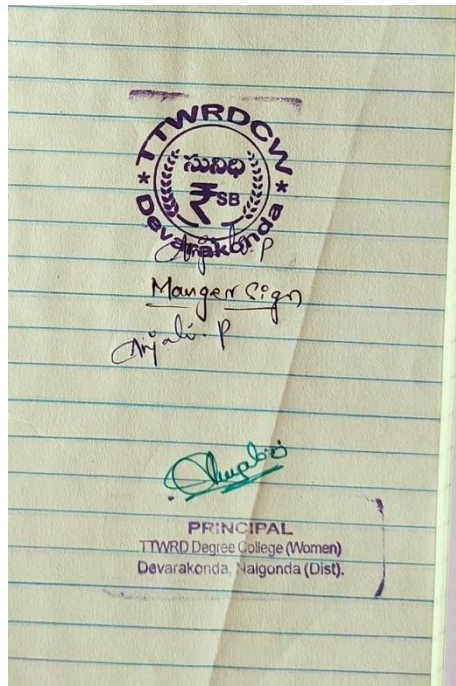 TTWRDCW
సునిధి
₹ SB
* Devarakonda *
Anjali. P
Manger Sign
Anjali. P
PRINCIPAL
TTWRD Degree College (Women)
Devarakonda, Nalgonda (Dist).